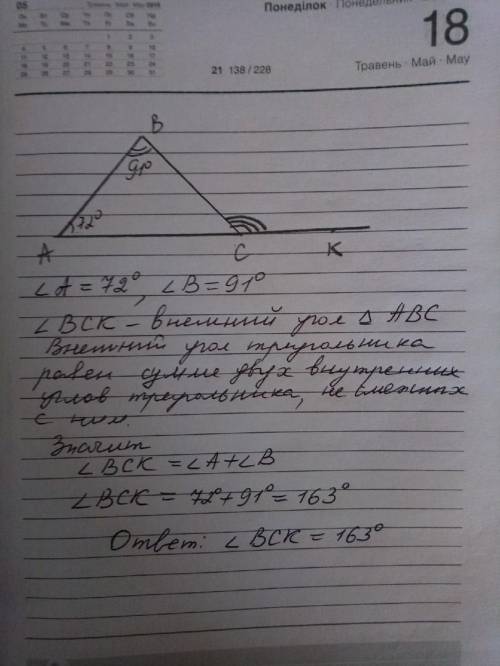 05 Травень · Май · May 2015
Понеділок · Понедельник
18
21 138 / 228
Травень · Май · May
B
91°
72°
A
C
K
∠A = 72°, ∠B = 91°
∠BCK – внешний угол △ ABC
Внешний угол треугольника
равен сумме двух внутренних
углов треугольника, не смежных
с ним.
Значит
∠BCK = ∠A + ∠B
∠BCK = 72° + 91° = 163°
Ответ: ∠BCK = 163°